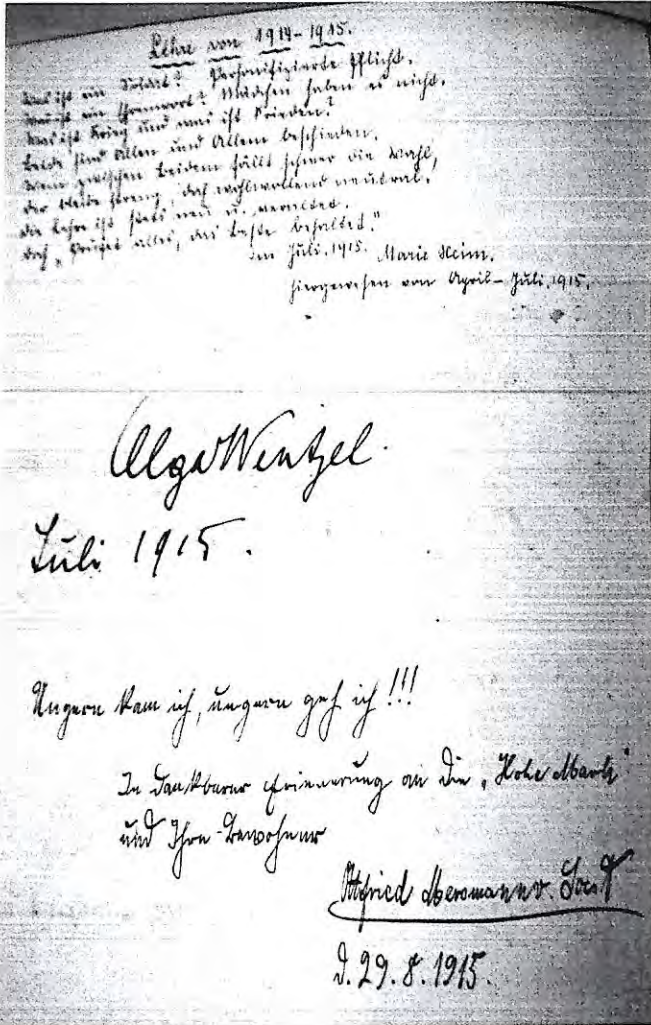 Lehre von 1914-1915.
Was ist ein Soldat? Personifizierte Pflicht.
Was ist ein Ehrenwort? Mädchen haben es nicht.
Was ist Krieg und was ist Frieden?
Beide sind Allen und Allem beschieden.
Wem zwischen beidem fällt schwer die Wahl,
der bleibe streng, doch wohlwollend neutral.
Die Lehre ist stets neu u. veraltet.
Doch „Prüfet alles, das beste behaltet."
Im Juli, 1915. Marie Heim.
hiergewesen von April - Juli, 1915.
Olga Wentzel.
Juli 1915.
Ungern kam ich, ungern geh ich!!!
In dankbarer Erinnerung an die „Hohe Mark"
und Ihre Bewohner
Ottfried
d. 29. 8. 1915.